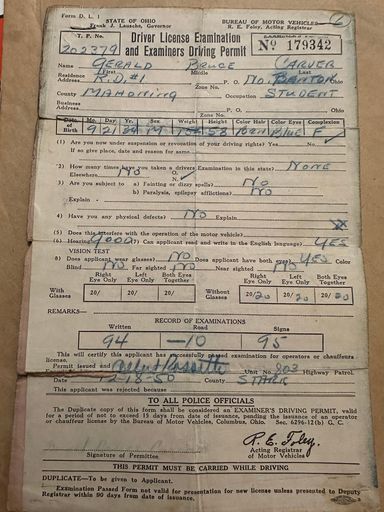 Form D. L. 1
STATE OF OHIO BUREAU OF MOTOR VEHICLES
Frank J. Lausche, Governor R. E. Foley, Acting Registrar
T. P. No. Driver License Examination
202379 and Examiners Driving Permit No 179342
Name GERALD Bruce CARVER
First Middle Last
Residence Address R.D. #1 P. O. No. BENTON Ohio
Zone No.
County MAHONING Occupation STUDENT
Business
Address P. O. Ohio
Zone No.
Date of Birth Mo. Day Yr. Sex Weight Height Color Hair Color Eyes Complexion
9 21 34 M BLUE F
(1) Are you now under suspension or revocation of your driving rights? Yes No
If so give place, date and reason
(2) How many times have you taken a drivers Examination in this state? NONE
Elsewhere NO O. N.
(3) Are you subject to a) Fainting or dizzy spells? NO
b) Paralysis, epilepsy afflictions? NO
Explain
(4) Have you any physical defects? NO Explain
(5) Does this interfere with the operation of the motor vehicle?
(6) Hearing GOOD Can applicant read and write in the English language? YES
VISION TEST
8) Does applicant wear glasses? NO Does applicant have both eyes? YES Color
Blind NO Far sighted NO Near sighted NO
Right Eye Only Left Eye Only Both Eyes Together Right Eye Only Left Eye Only Both Eyes Together
With Glasses 20/ 20/ 20/ Without Glasses 20/20 20/20 20/20
REMARKS
RECORD OF EXAMINATIONS
Written Road Signs
94 —10 95
This will certify this applicant has successfully passed examination for operators or chauffeurs
license.
Permit issued and Unit No. 803 Highway Patrol.
Date 12-18-50 County STARK
This applicant was rejected because
TO ALL POLICE OFFICIALS
The Duplicate copy of this form shall be considered an EXAMINER'S DRIVING PERMIT, valid
for a period of not to exceed 15 days from date of issuance, pending the issuance of an operator
or chauffeur license by the Bureau of Motor Vehicles, Columbus, Ohio. Sec. 6296-12(b) G. C.
R. E. Foley,
Acting Registrar
of Motor Vehicles
Signature of Permittee
THIS PERMIT MUST BE CARRIED WHILE DRIVING
DUPLICATE—To be given to Applicant.
Examination Passed Form not valid for presentation for new license unless presented to Deputy
Registrar within 90 days from date of issuance.